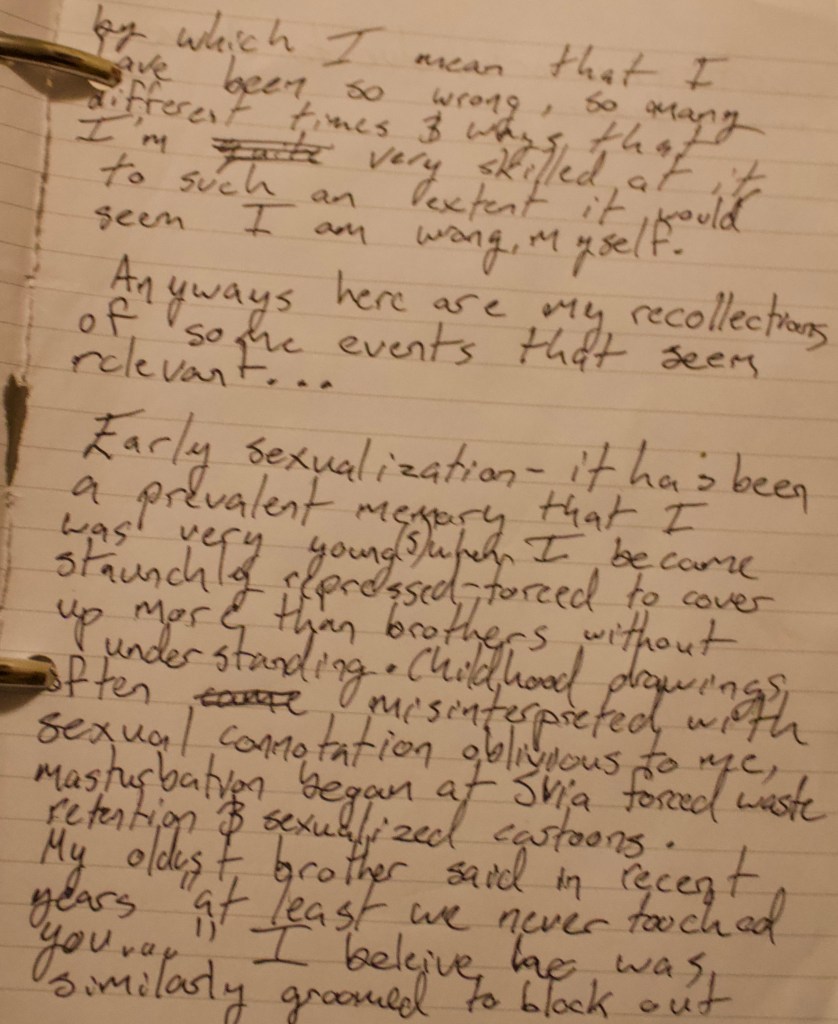 by which I mean that I
ave been so wrong, so many
different times & ways that
I'm very skilled at it
to such an extent it would
seem I am wrong, myself.
Anyways here are my recollections
of some events that seem
relevant...
Early sexualization - it has been
a prevalent memory that I
was very young(5) when I became
staunchly repressed - forced to cover
up more than brothers without
understanding. Childhood drawings
often misinterpreted with
sexual connotation oblivious to me,
masturbation began at 5 via forced waste
retention & sexualized cartoons.
My oldest brother said in recent
years "at least we never touched
you..." I beleive he was
similarly groomed to block out